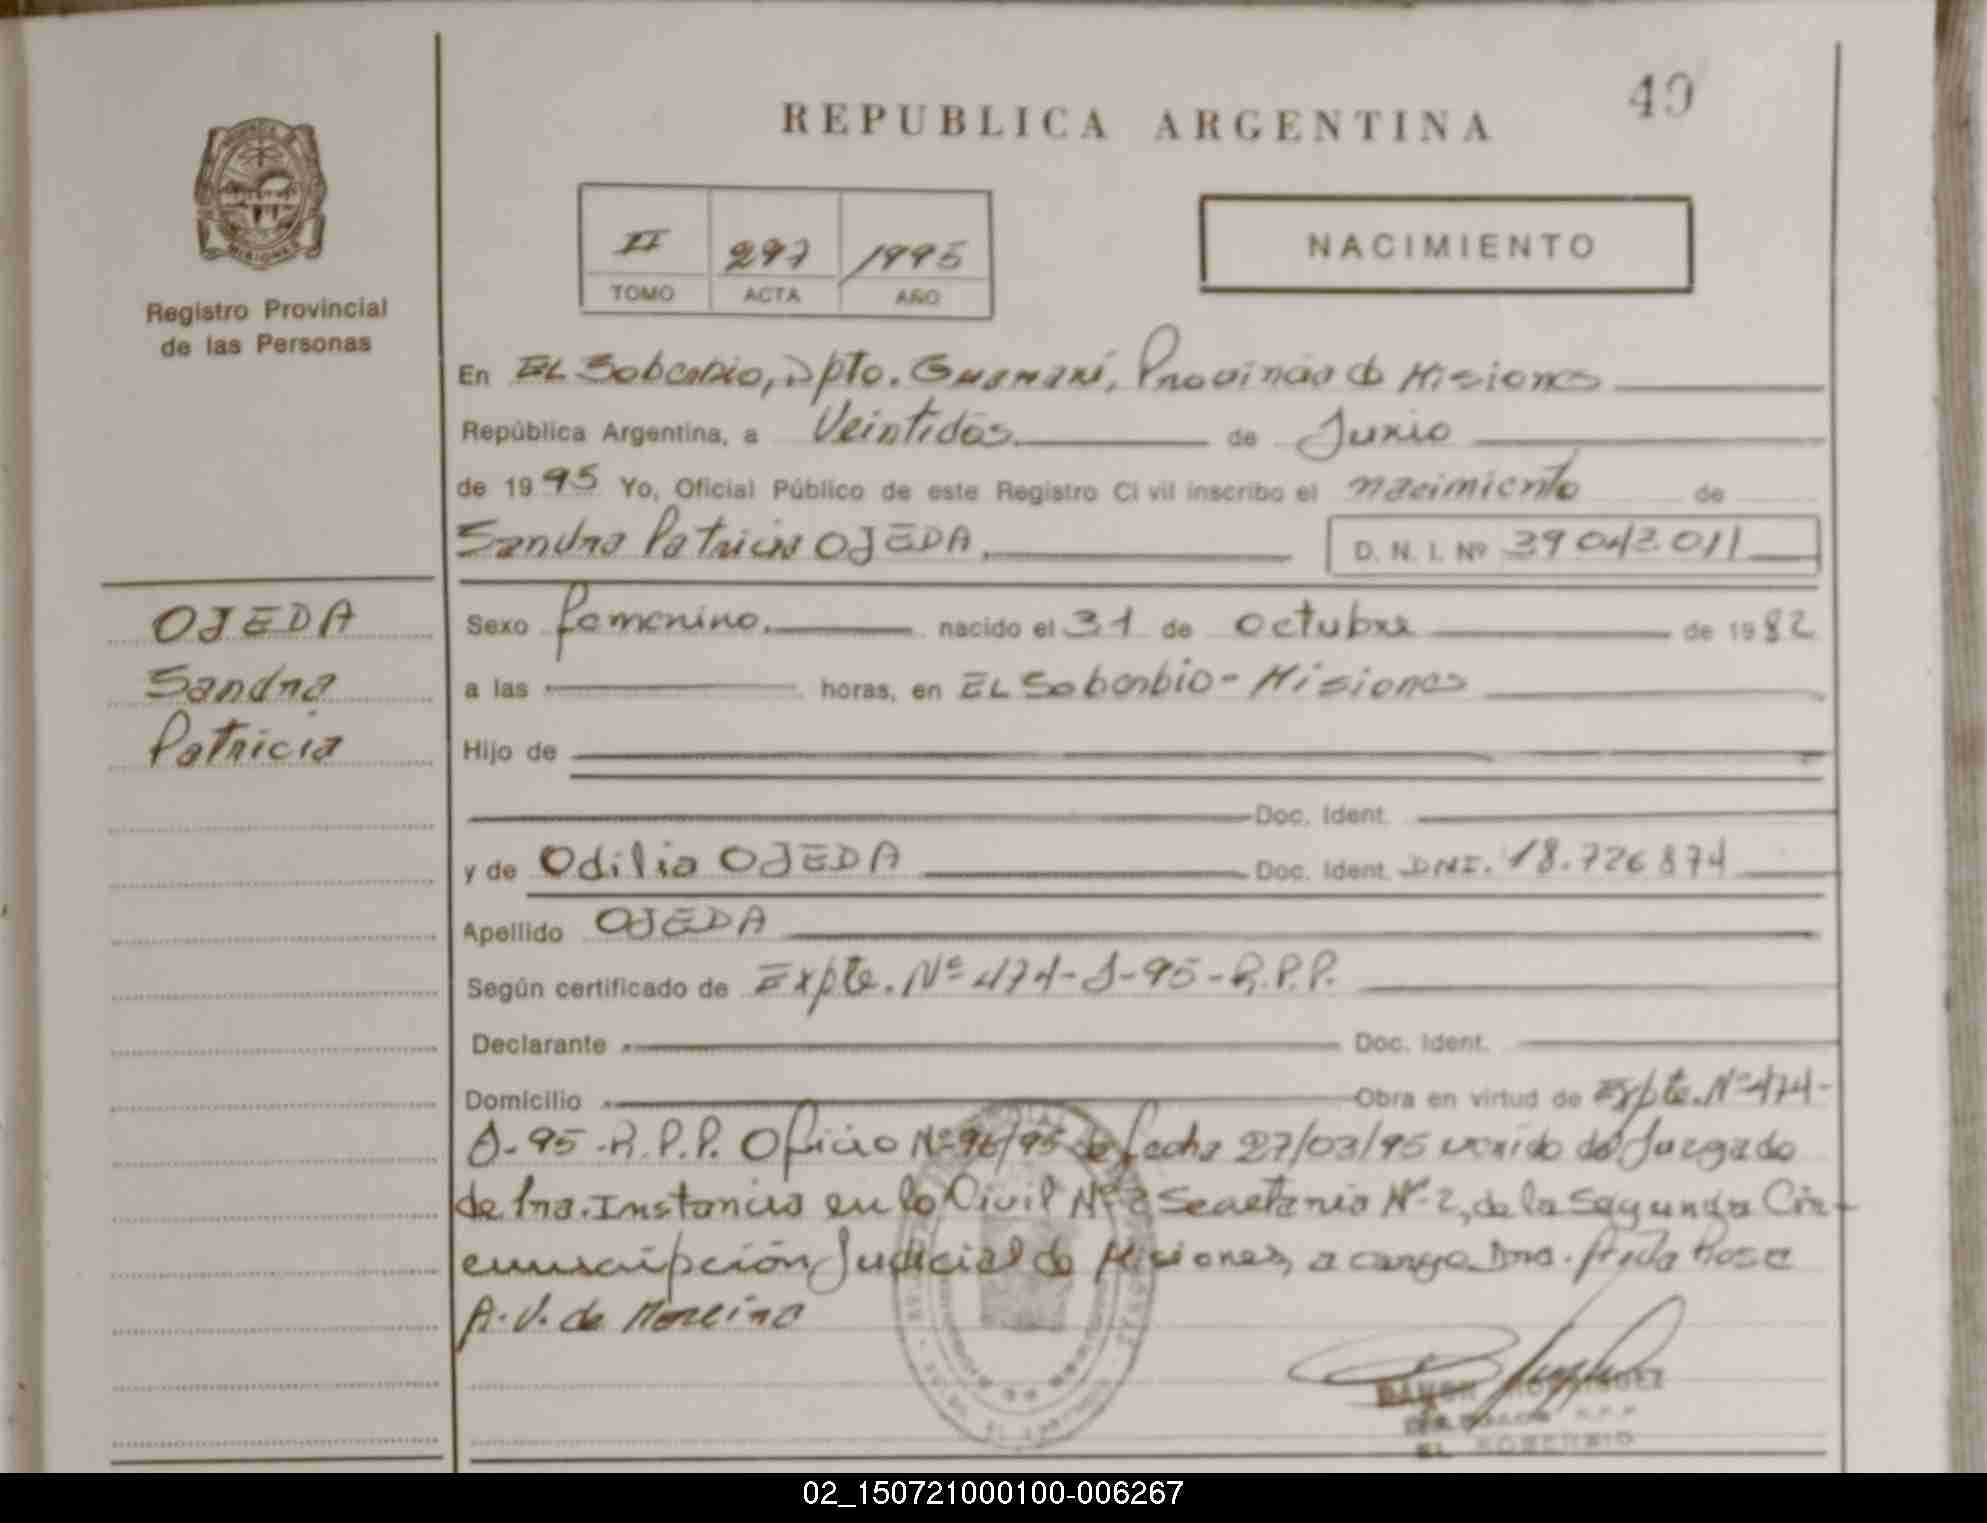 49
REPUBLICA ARGENTINA
MISIONES
Registro Provincial
de las Personas
II 297 1995
TOMO ACTA AÑO
NACIMIENTO
En EL Soberbio, Dpto. Guaraní, Provincia de Misiones
República Argentina, a Veintidos de Junio
de 1995 Yo, Oficial Público de este Registro Civil inscribo el nacimiento de
Sandra Patricia OJEDA, D. N. I. Nº 39042.011
OJEDA
Sandra
Patricia
Sexo femenino. nacido el 31 de octubre de 1982
a las horas, en EL Soberbio - Misiones
Hijo de
Doc. Ident.
y de Odilia OJEDA Doc. Ident. DNI. 18.726874
Apellido OJEDA
Según certificado de Expte. Nº 474-J-95-R.P.P.
Declarante Doc. Ident.
Domicilio Obra en virtud de Expte. Nº 474-
J-95-R.P.P. Oficio Nº 96/95 de fecha 27/03/95 venido del Juzgado
de 1ra. Instancia en lo Civil Nº 2 Secretaria Nº 2, de la Segunda Cir-
cunscripción Judicial de Misiones, a cargo Dra. Rosa
A.V. de Moreira
RAMON RODRIGUEZ
R.P.P
EL SOBERBIO
02_150721000100-006267